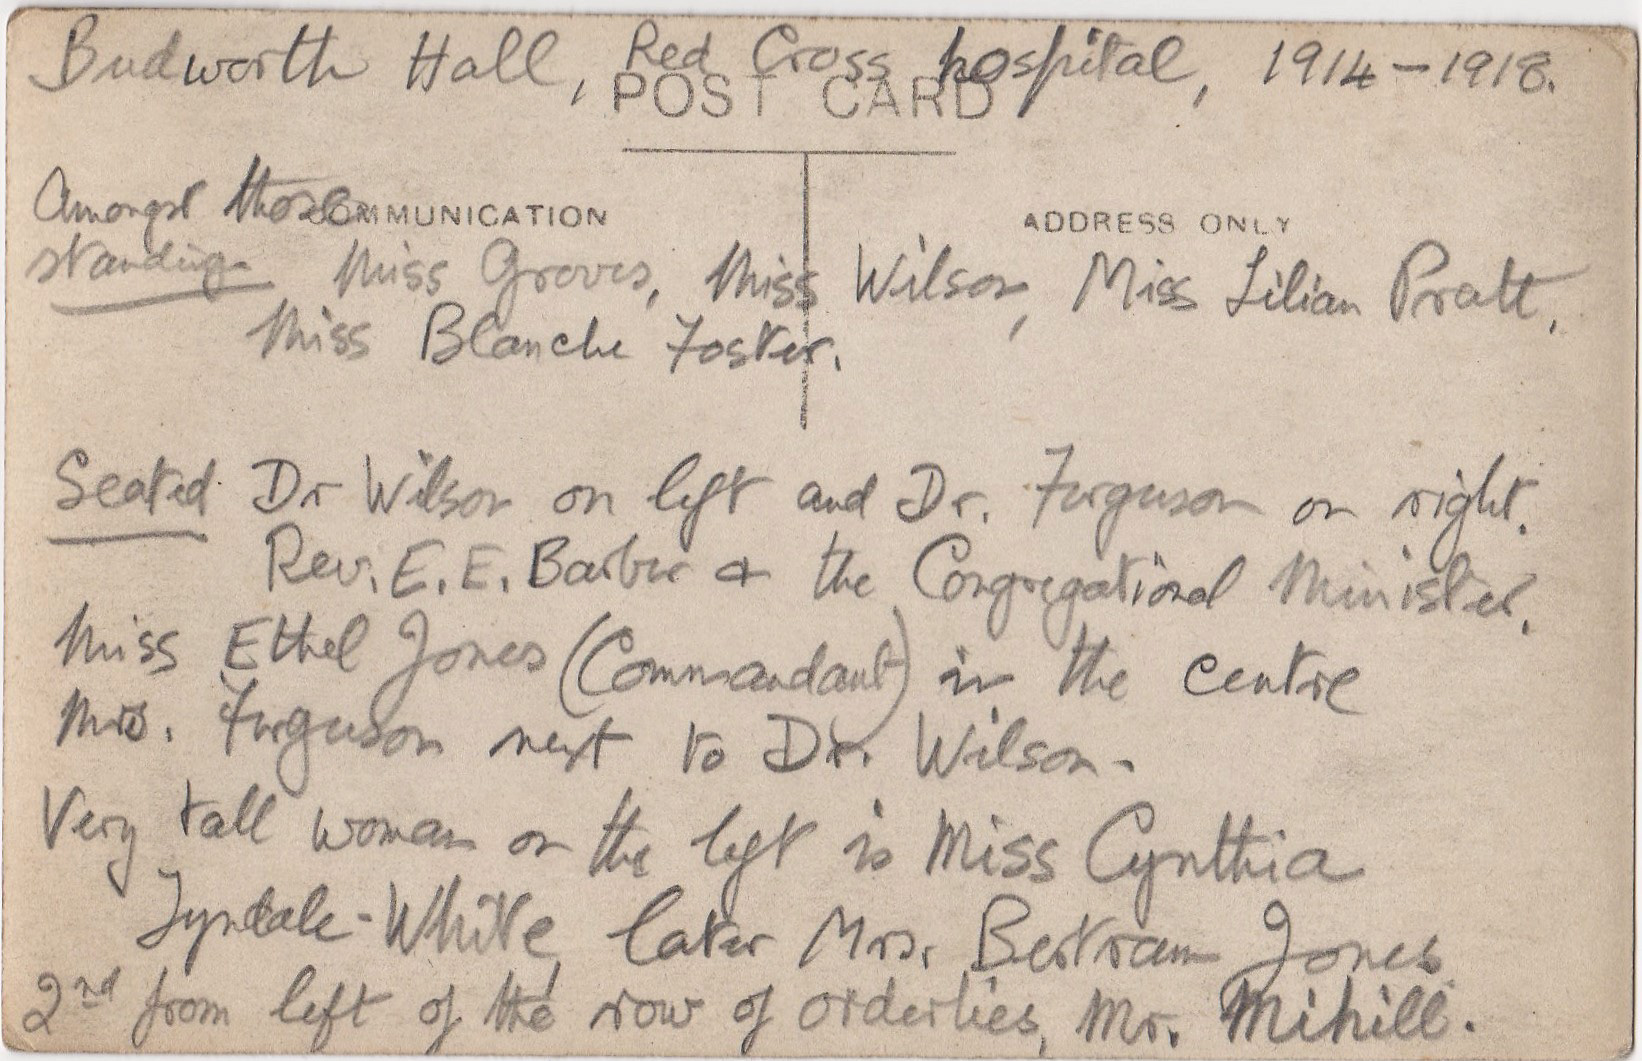 Budworth Hall, Red Cross hospital, 1914-1918.
POST CARD
Amongst those
COMMUNICATION
ADDRESS ONLY
standing Miss Groves, Miss Wilson, Miss Lilian Pratt,
Miss Blanche Foster.
Seated Dr Wilson on left and Dr. Ferguson on right.
Rev. E. E. Barber + the Congregational Minister.
Miss Ethel Jones (Commandant) in the centre
Mrs. Ferguson next to Dr. Wilson.
Very tall woman on the left is Miss Cynthia
Tyndale-White, later Mrs. Bertram Jones
2nd from left of the row of orderlies, Mr. Mihill.